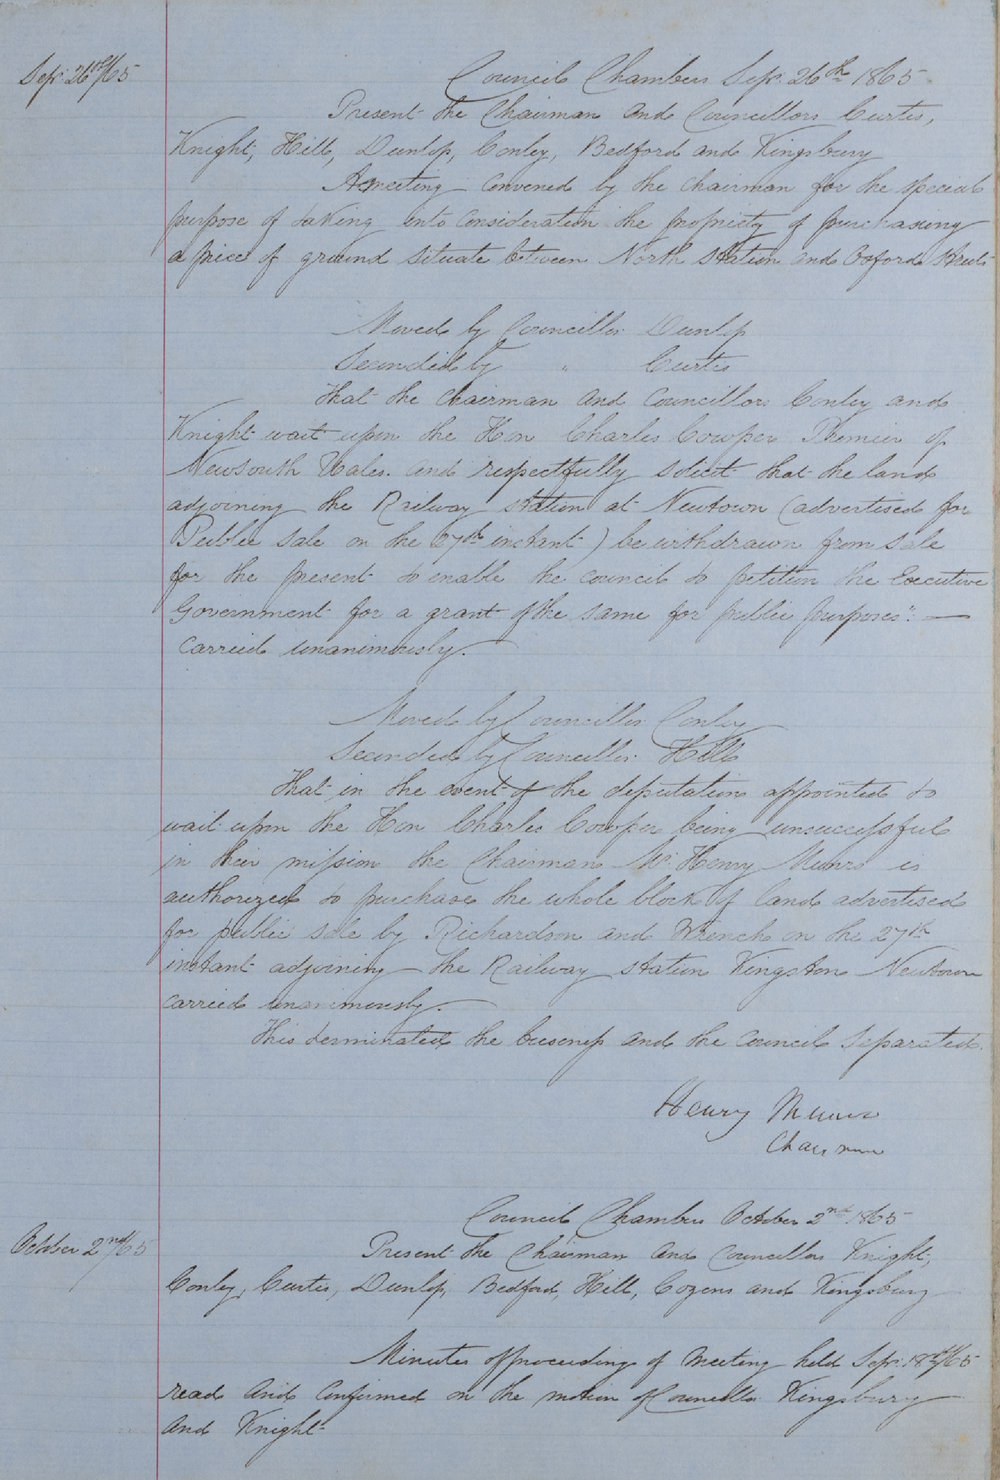 Sep: 26th/65
Council Chambers Sep: 26th 1865
Present the Chairman and Councillors Curtis,
Knight, Hill, Dunlop, Conley, Bedford and Kingsbury
A meeting convened by the chairman for the special
purpose of taking into consideration the propriety of purchasing
a piece of ground situate between North station and Oxford Streets
Moved by Councillor Dunlop
Seconded by " Curtis
That the Chairman and Councillors Conley and
Knight wait upon the Hon Charles Cowper Premier of
Newsouth Wales. and respectfully solicit that the land
adjoining the Railway station at Newtown (advertised for
Public sale on the 27th instant) be withdrawn from sale
for the present to enable the council to petition the Executive
Government for a grant of the same for public purposes": —
carried unanimously.
Moved by Councillor Conley
Seconded by Councillor Hill
That in the event of the deputation appointed to
wait upon the Hon Charles Cowper being unsuccessful
in their mission the Chairman Mr. Henry Munro is
authorized to purchase the whole block of land advertised
for public sale by Richardson and Wrench on the 27th
instant adjoining the Railway station Kingston Newtown
carried unanimously.
This terminated the business and the council separated.
Henry Munro
Chairman
October 2nd/65
Council Chambers October 2nd 1865
Present the Chairman and Councillors Knight,
Conley, Curtis, Dunlop, Bedford, Hill, Cozens and Kingsbury
Minutes of proceedings of meeting held Sep: 18th/65
read and confirmed on the motion of Councillors Kingsbury
and Knight